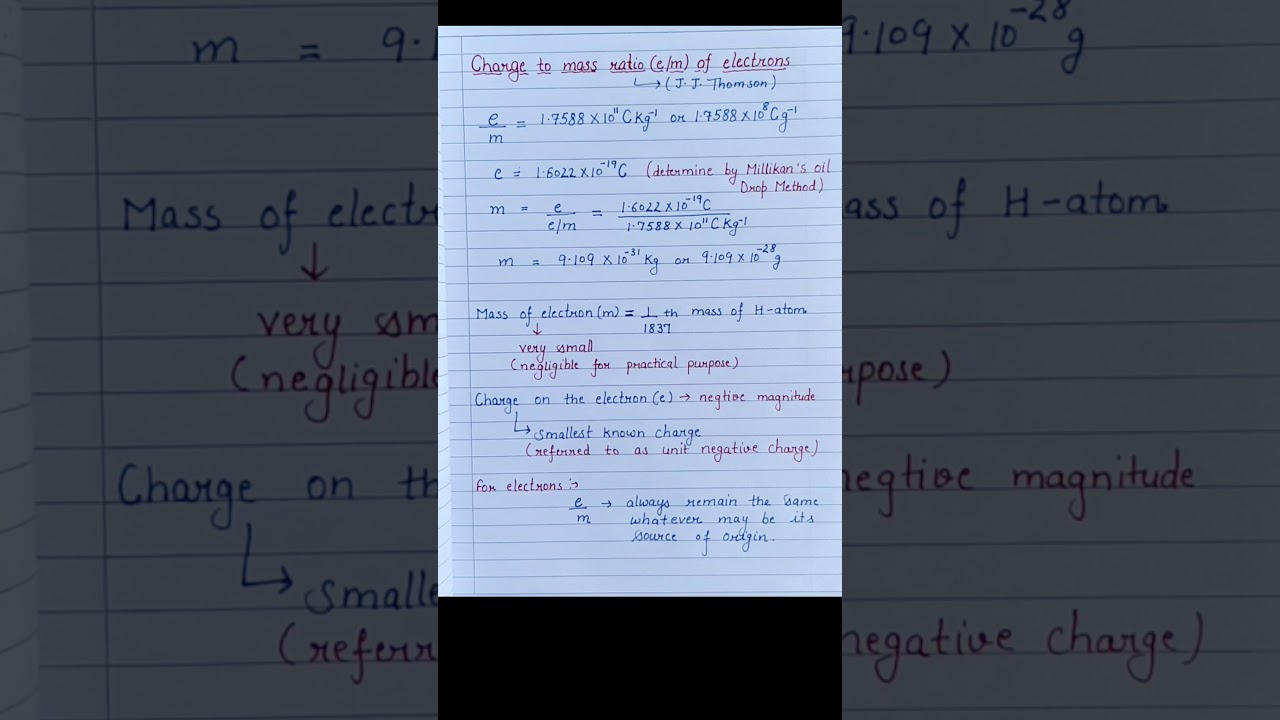 m = 9.1
9.109 × 10⁻²⁸ g
Mass of electr
ass of H-atom
↓
very sm
(negligible
rpose)
Charge on th
negtive magnitude
↳ smalle
(referr
negative charge)
Charge to mass ratio (e/m) of electrons
↳ (J.J. Thomson)
e/m = 1.7588 × 10¹¹ C Kg⁻¹ or 1.7588 × 10⁸ C g⁻¹
e = 1.6022 × 10⁻¹⁹ C (determine by Millikan's oil
Drop Method)
m = e / e/m = 1.6022 × 10⁻¹⁹ C / 1.7588 × 10¹¹ C Kg⁻¹
m = 9.109 × 10⁻³¹ Kg or 9.109 × 10⁻²⁸ g
Mass of electron (m) = 1/1837 th mass of H-atom
↓
very small
(negligible for practical purpose)
Charge on the electron (e) → negtive magnitude
↳ smallest known charge
(referred to as unit negative charge)
For electrons :-
e/m → always remain the same
whatever may be its
source of origin.